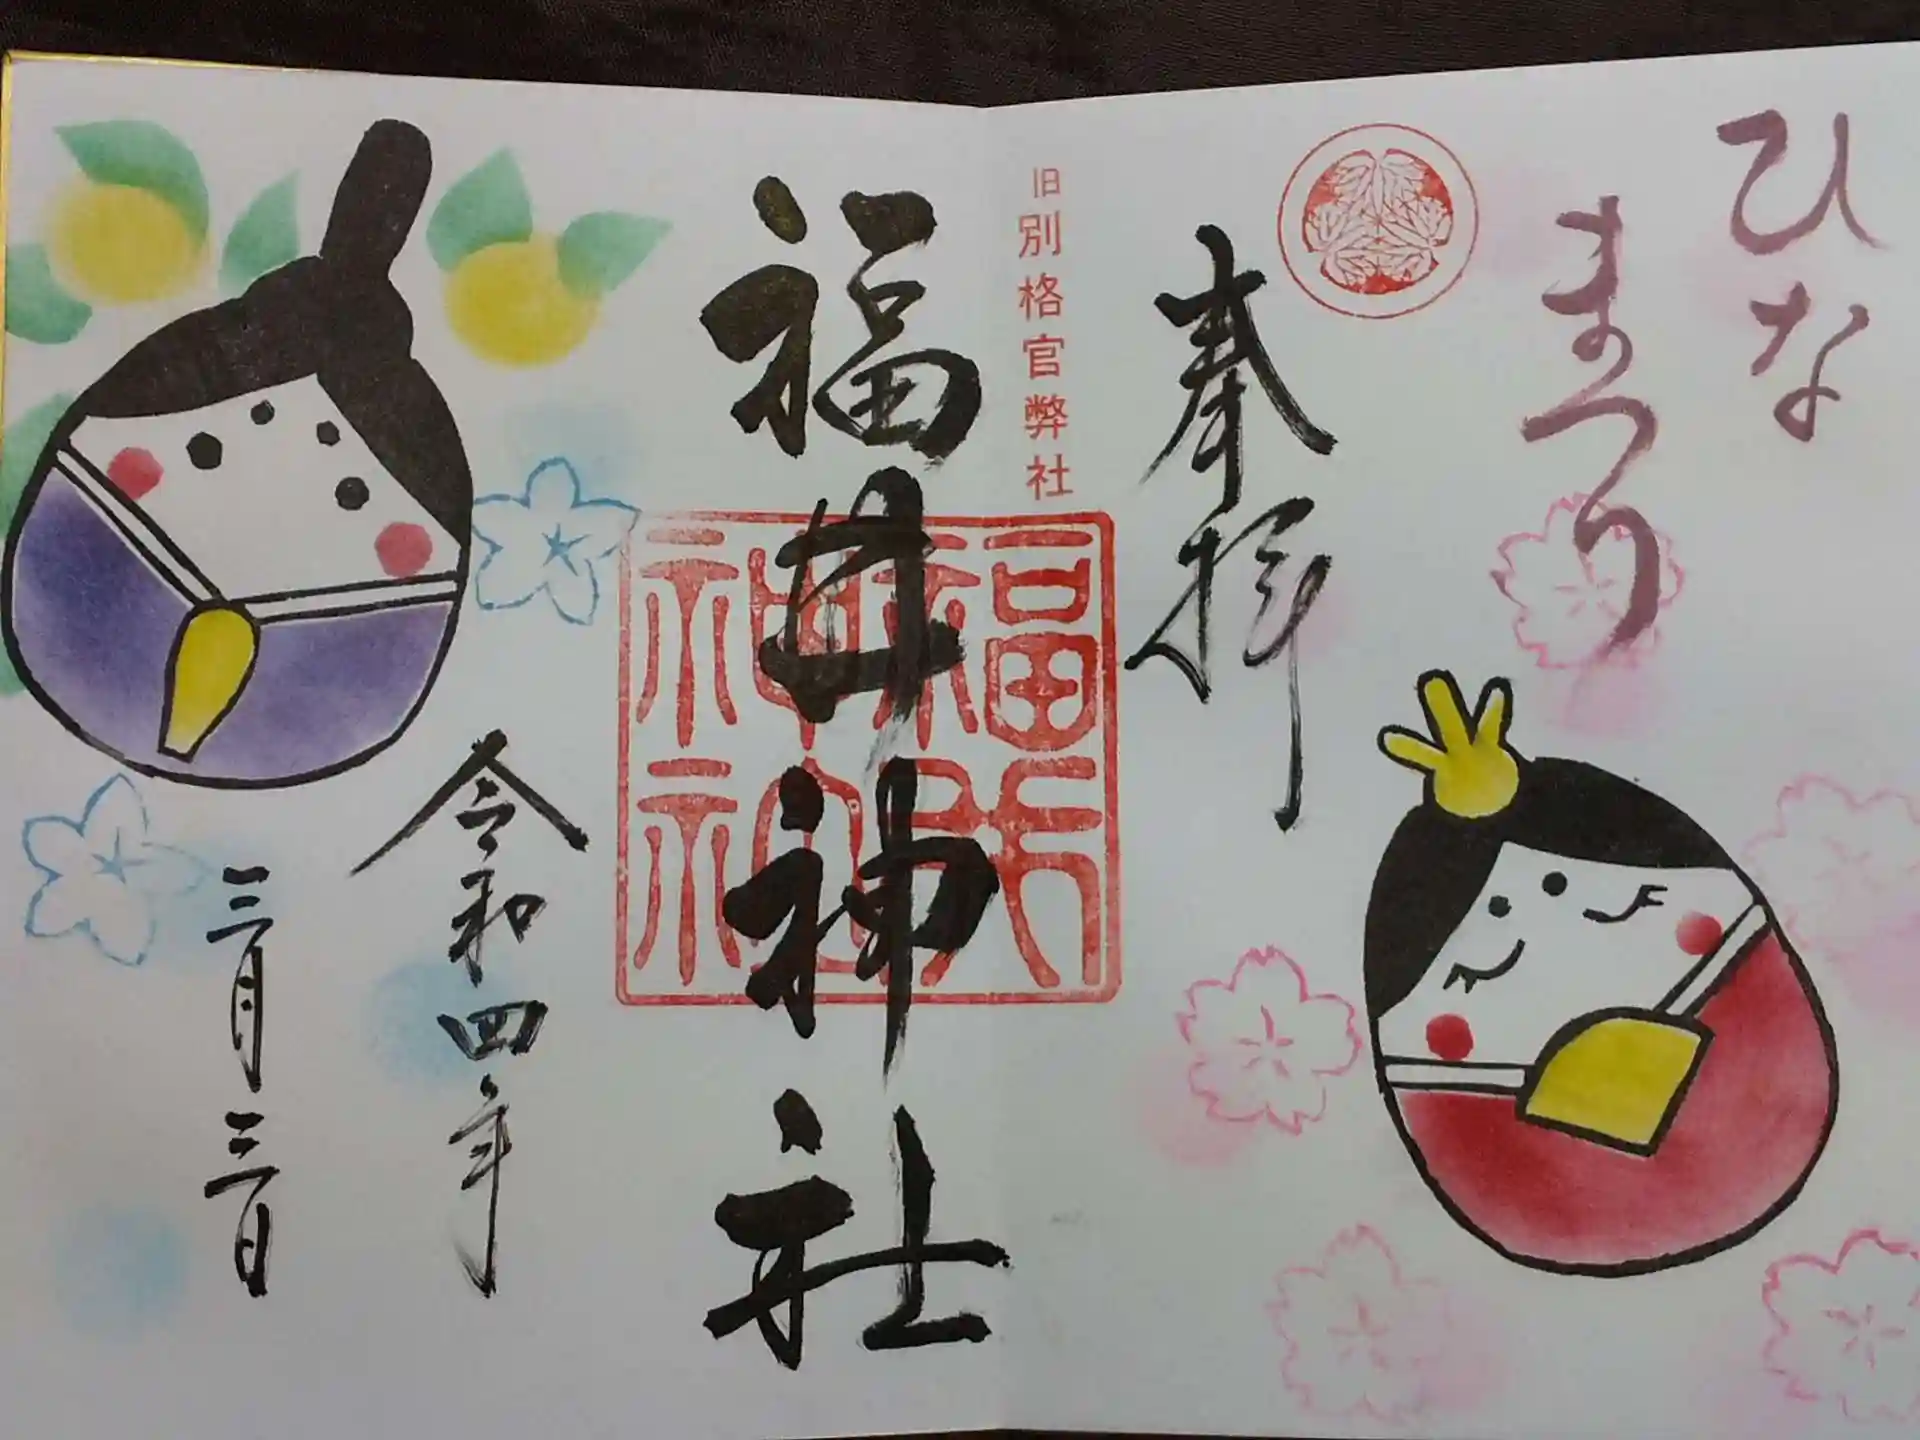 ひな
まつり
奉拝
旧別格官弊社
福井神社
令和四年
三月三日